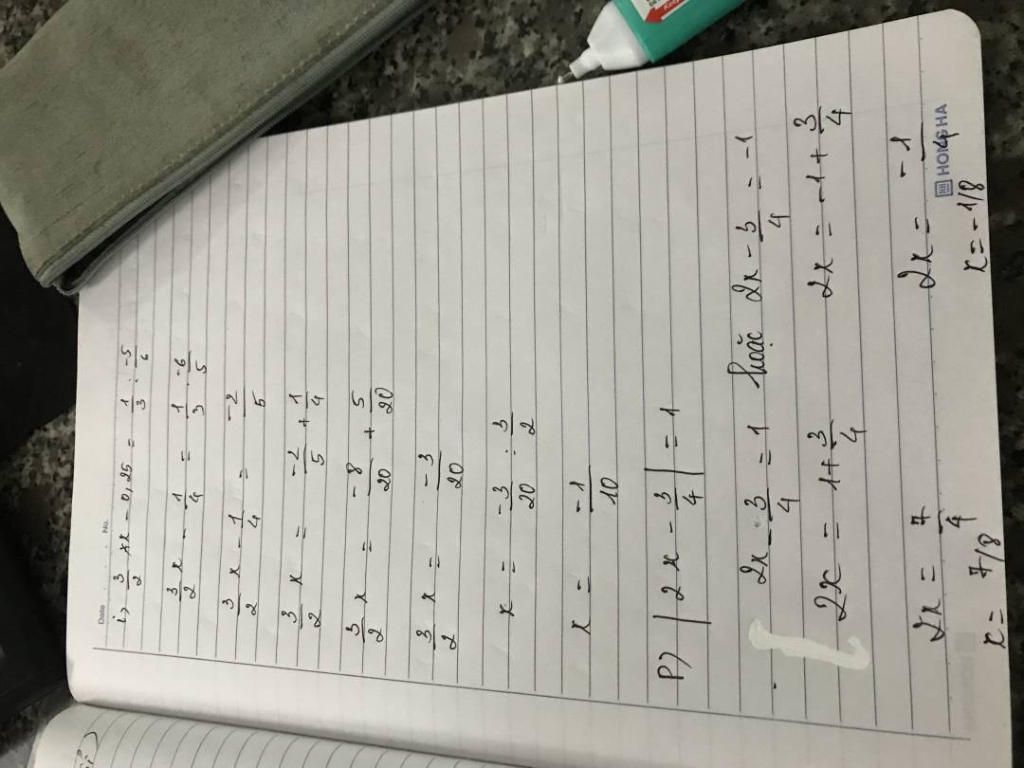 Date No.
i, 3/2 x x - 0,25 = 1/3 : -5/6
3/2 x - 1/4 = 1/3 . -6/5
3/2 x - 1/4 = -2/5
3/2 x = -2/5 + 1/4
3/2 x = -8/20 + 5/20
3/2 x = -3/20
x = -3/20 : 3/2
x = -1/10
P, | 2x - 3/4 | = 1
2x - 3/4 = 1 hoặc 2x - 3/4 = -1
2x = 1 + 3/4 2x = -1 + 3/4
2x = 7/4 2x = -1/4
x = 7/8 x = -1/8
HONG HA